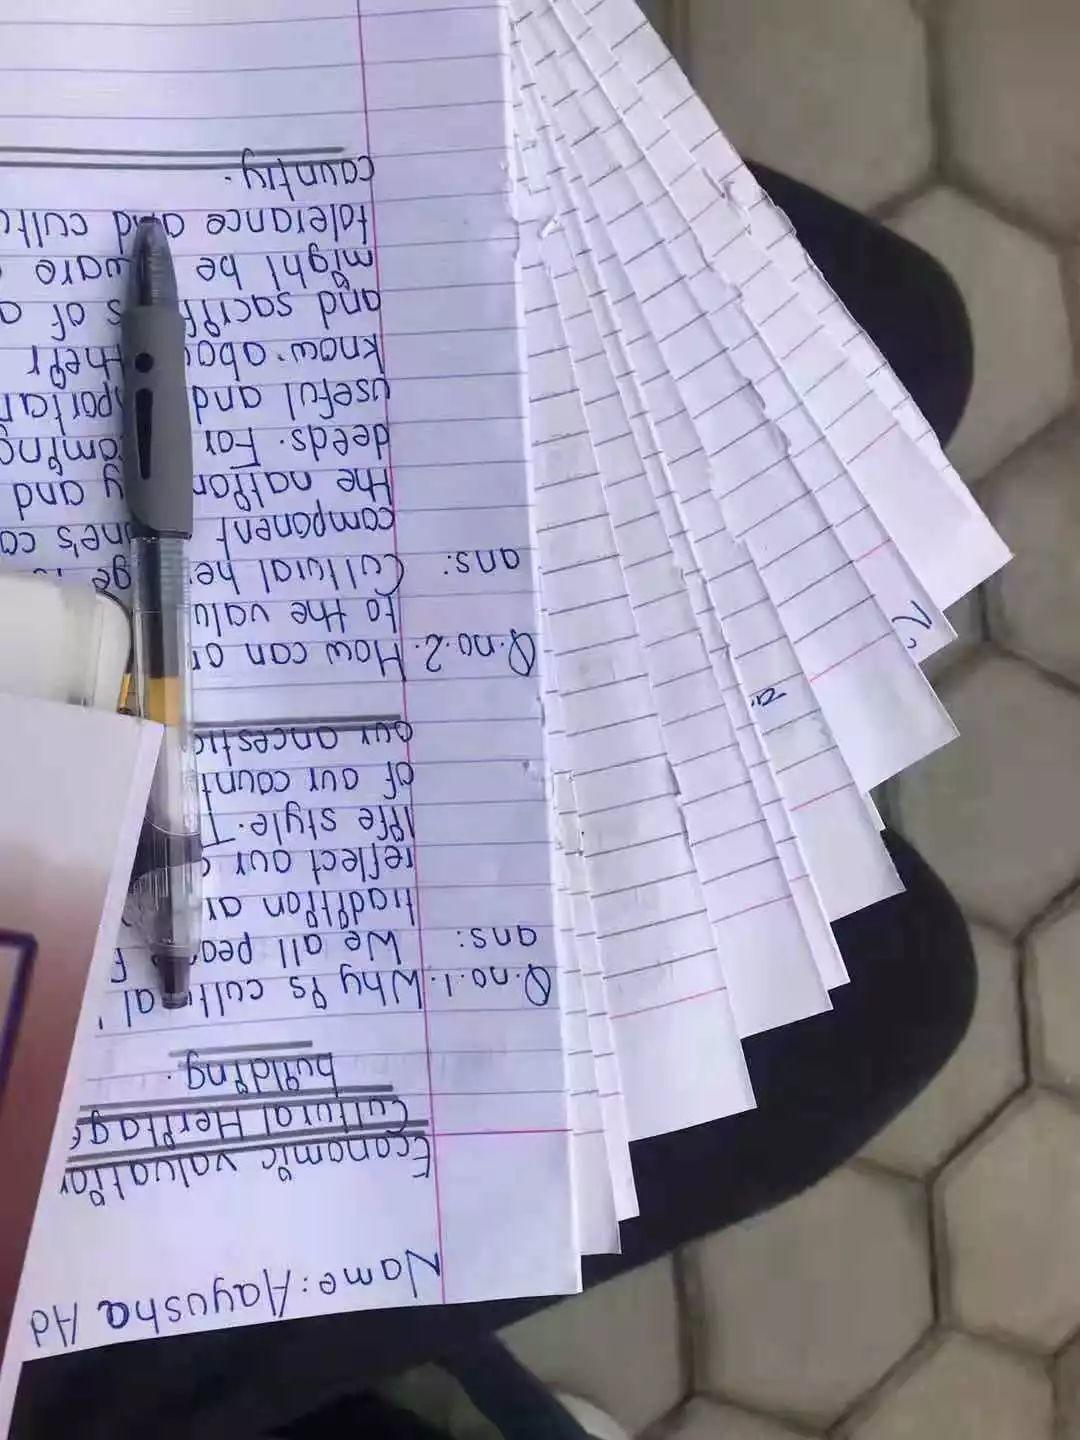 Name: Aayusha Ad
Economic valuation
Cultural Heritage
building.
Q.no.1. Why is cultural
ans: We all peo
tradition
reflect our
life style. T
of our count
our ancest
Q.no.2. How can
to the valu
ans: Cultural he ge is
component ne's co
the nation y and
deeds. For coming
useful and importan
know abo their
and sacrif s of a
might be aware
tolerance and cultu
country.